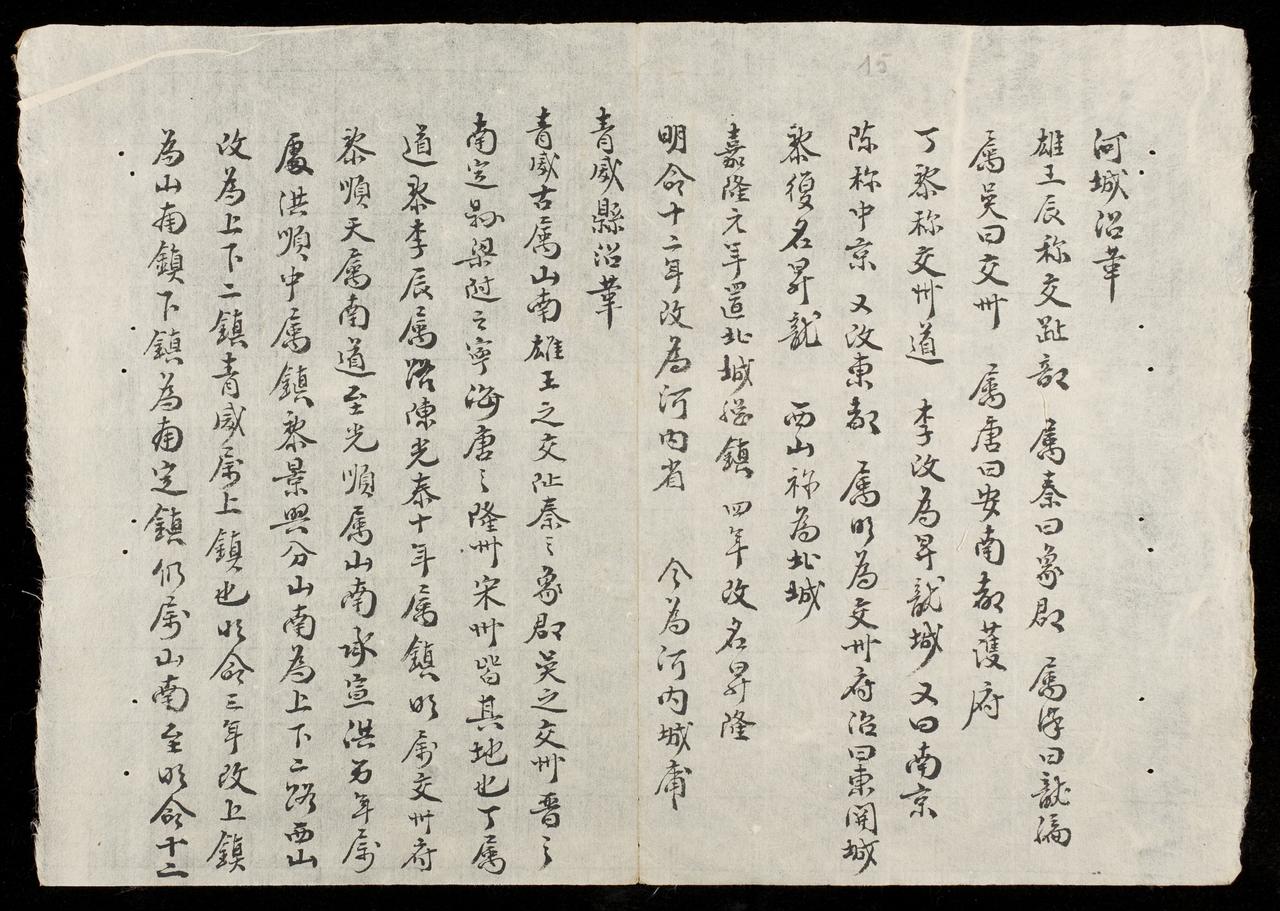 15
河城沿革
雄王辰称交趾部　属秦曰象郡　属漢曰龍編
属吳曰交州　属唐曰安南都護府
丁黎称交州道　李改為昇龍城又曰南京
陈称中京　又改東都　属明為交州府治曰東関城
黎復名昇龍　西山称為北城
嘉隆元年置北城總鎮　四年改名昇隆
明命十二年改為河内省　今為河内城庯
青威縣沿革
青威古属山南雄王之交阯秦之象郡吳之交州晋之
南定縣梁陞之寧海唐之隆州宋州皆其地也丁属
道黎李辰属路陳光泰十年属鎮明属交州府
黎順天属南道至光順属山南承宣洪德年属
處洪順中属鎮黎景興分山南為上下二路西山
改為上下二鎮青威属上鎮也明命三年改上鎮
為山南鎮下鎮為南定鎮仍属山南至明命十二